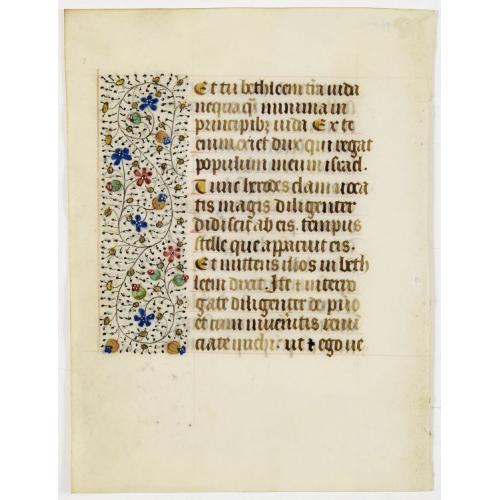 Et tu bethleem tia iuda
nequaq̃ minima in
principibꝫ iuda Ex te
enim exiet dux qui regat
populum meum israel.
Tunc herodes clam voca
tis magis diligenter
didiscit ab eis. tempus
stelle que apparuit eis.
Et mittens illos in beth
leem dixit. Ite et interro
gate diligenter de puo
et cum inveneritis renū
ciate michi: ut et ego ve